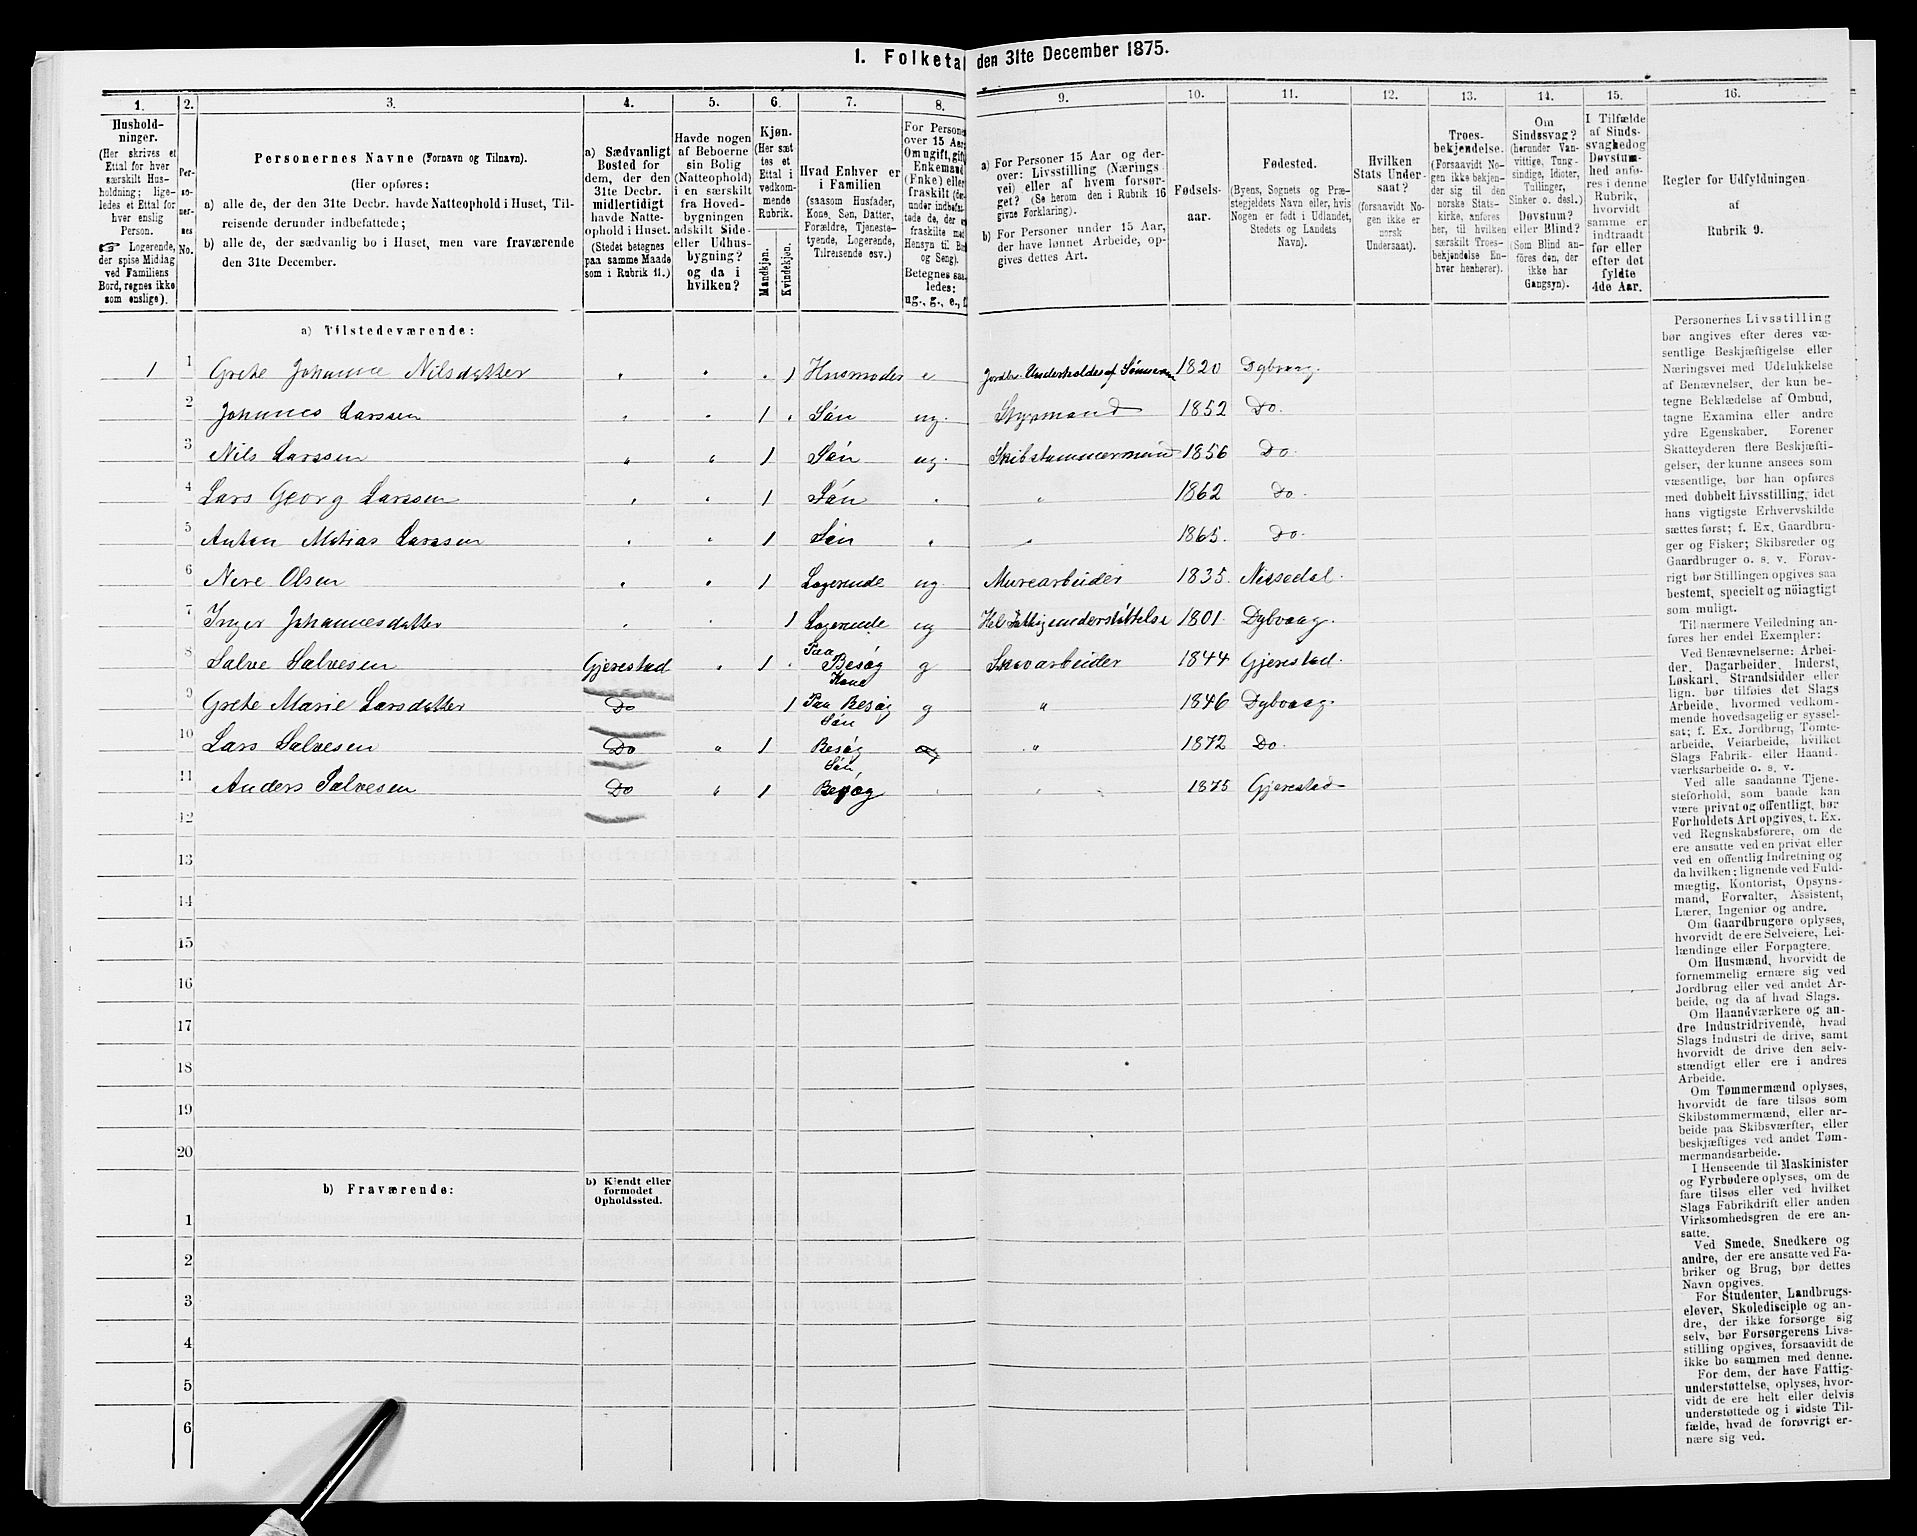 1. Folketal den 31te December 1875.
1. 2. 3. 4. 5. 6. 7. 8. 9. 10. 11. 12. 13. 14. 15. 16.
Hushold-
ninger.
(Her skrives et
Ettal for hver
særskilt Hus-
holdning; lige-
ledes et Ettal for
hver enslig
Person.
☞ Logerende,
der spise Middag
ved Familiens
Bord, regnes ikke
som enslige).
Per-
so-
ner-
nes
No.
Personernes Navne (Fornavn og Tilnavn).
(Her opføres:
a) alle de, der den 31te Decbr. havde Natteophold i Huset, Til-
reisende derunder indbefattede;
b) alle de, der sædvanlig bo i Huset, men vare fraværende
den 31te December.
a) Sædvanligt
Bosted for
dem, der den
31te Decbr.
midlertidigt
havde Natte-
ophold i Huset.
(Stedet betegnes
paa samme Maade
som i Rubrik 11.)
Havde nogen
af Beboerne
sin Bolig
(Natteophold)
i en særskilt
fra Hoved-
bygningen
adskilt Side-
eller Udhus-
bygning?
og da i
hvilken?
Kjøn.
(Her sæt-
tes et
Ettal i
vedkom-
mende
Rubrik.
Mandkjøn.
Kvindekjøn.
Hvad Enhver er
i Familien
(saasom Husfader,
Kone, Søn, Datter,
Forældre, Tjeneste-
tyende, Logerende,
Tilreisende osv.)
For Persone
over 15 Aar
Om ugift, gift
Enkemand
(Enke) eller
fraskilt (der-
under indbefat-
tede de, der e
fraskilte med
Hensyn til Bo
og Seng).
Betegnes saa-
ledes:
ug., g., e., f.
a) For Personer 15 Aar og der-
over: Livsstilling (Nærings-
vei) eller af hvem forsør-
get? (Se herom den i Rubrik 16
givne Forklaring).
b) For Personer under 15 Aar,
der have lønnet Arbeide, op-
gives dettes Art.
Fødsels-
aar.
Fødested.
(Byens, Sognets og Præ-
stegjeldets Navn eller, hvis
Nogen er født i Udlandet,
Stedets og Landets
Navn).
Hvilken
Stats Under-
saat?
(forsaavidt No-
gen ikke er
norsk
Undersaat).
Troes-
bekjendelse.
(Forsaavidt No-
gen ikke bekjen-
der sig til den
norske Stats-
kirke, anføres
her, til hvilken
særskilt Troes-
bekjendelse En-
hver henhører).
Om
Sindssvag?
(herunder Van-
vittige, Tung-
sindige, Idioter,
Tullinger,
Sinker o. desl.)
Døvstum?
eller Blind?
(Som Blind an-
føres den, der
ikke har
Gangsyn).
I Tilfælde
af Sinds-
svaghed og
Døvstum-
hed anfø-
res i denne
Rubrik,
hvorvidt
samme er
indtraadt
før eller
efter det
fyldte
4de Aar.
Regler for Udfyldningen
af
Rubrik 9.
a) Tilstedeværende:
1 1 Grete Johanne Nilsdatter 1 Husmoder e Jordbr. Underholdes af Sønnerne 1820 Dybvaag.
2 Johannes Larssen 1 Søn ug. Styrmand 1852 Do.
3 Nils Larssen 1 Søn ug. Skibstømmermand 1856 Do.
4 Lars Georg Larssen 1 Søn 1862 Do.
5 Anton Matias Larssen 1 Søn 1865. Do.
6 Nere Olsen 1 Logerende ug. Murearbeider 1835. Nissedal.
7 Inger Johannesdatter 1 Logerende ug Hel Fattigunderstøttelse 1801. Dybvaag.
8 Salve Salvesen Gjerestad 1 Paa Besøg g Skovarbeider 1844 Gjerestad.
9 Grete Marie Larsdatter Do 1 Kone Paa Besøg g 1846 Dybvaag.
10 Lars Salvesen Do 1 Søn Besøg 1872 Do.
11 Anders Salvesen Do 1 Søn Besøg 1875 Gjerestad
12
13
14
15
16
17
18
19
20
b) Fraværende:
b) Kjendt eller
formodet
Opholdssted.
1
2
3
4
5
6
Personernes Livsstilling
bør angives efter deres væ-
sentlige Beskjæftigelse eller
Næringsvei med Udelukkelse
af Benævnelser, der kun be-
tegne Beklædelse af Ombud,
tagne Examina eller andre
ydre Egenskaber. Forener
Skatteyderen flere Beskjæfti-
gelser, der kunne ansees som
væsentlige, bør han opføres
med dobbelt Livsstilling, idet
hans vigtigste Erhvervskilde
sættes først; f. Ex. Gaardbru-
ger og Fisker; Skibsreder og
Gaardbruger o. s. v. Forøv-
rigt bør Stillingen opgives saa
bestemt, specielt og nøiagtigt
som muligt.
Til nærmere Veiledning an-
føres her endel Exempler:
Ved Benævnelserne: Arbei-
der, Dagarbeider, Inderst,
Løskarl, Strandsidder eller
lign. bør tilføies det Slags
Arbeide, hvormed vedkom-
mende hovedsagelig er syssel-
sat; f. Ex. Jordbrug, Tomte-
arbeide, Veiarbeide, hvilket
Slags Fabrik- eller Haand-
værksarbeide o. s. v.
Ved alle saadanne Tjene-
steforhold, som baade kan
være privat og offentligt, bør
Forholdets Art opgives, t. Ex.
ved Regnskabsførere, om de
ere ansatte ved en privat eller
ved en offentlig Indretning og
da hvilken; lignende ved Fuld-
mægtig, Kontorist, Opsyns-
mand, Forvalter, Assistent,
Lærer, Ingeniør og andre.
Om Gaardbrugere oplyses,
hvorvidt de ere Selveiere, Lei-
lændinge eller Forpagtere.
Om Husmænd, hvorvidt de
fornemmelig ernære sig ved
Jordbrug eller ved andet Ar-
beide, og da af hvad Slags.
Om Haandværkere og an-
dre Industridrivende, hvad
Slags Industri de drive, samt
hvorvidt de drive den selv-
stændigt eller ere i andres
Arbeide.
Om Tømmermænd oplyses,
hvorvidt de fare tilsøs som
Skibstømmermænd, eller ar-
beide paa Skibsværfter, eller
beskjæftiges ved andet Tøm-
mermandsarbeide.
I Henseende til Maskinister
og Fyrbødere oplyses, om de
fare tilsøs eller ved hvilket
Slags Fabrikdrift eller anden
Virksomhedsgren de ere an-
satte.
Ved Smede, Snedkere og
andre, der ere ansatte ved Fa-
briker og Brug, bør dettes
Navn opgives.
For Studenter, Landbrugs-
elever, Skoledisciple og an-
dre, der ikke forsørge sig
selv, bør Forsørgerens Livs-
stilling opgives, forsaavidt de
ikke bo sammen med denne.
For dem, der have Fattig-
understøttelse, oplyses, hvor-
vidt de ere helt eller delvis
understøttede og i sidste Til-
fælde, hvad de forøvrigt er-
nære sig ved.